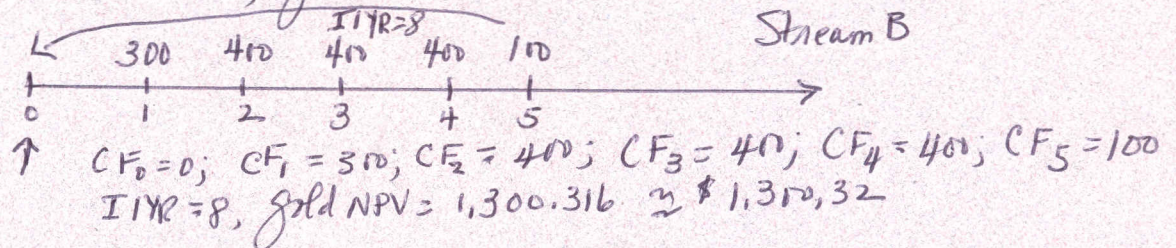 I/YR=8
Stream B
300 400 400 400 100
0 1 2 3 4 5
CF₀=0; CF₁=300; CF₂=400; CF₃=400; CF₄=400; CF₅=100
I/YR=8, gold NPV=1,300.316 ≈ $1,300,32